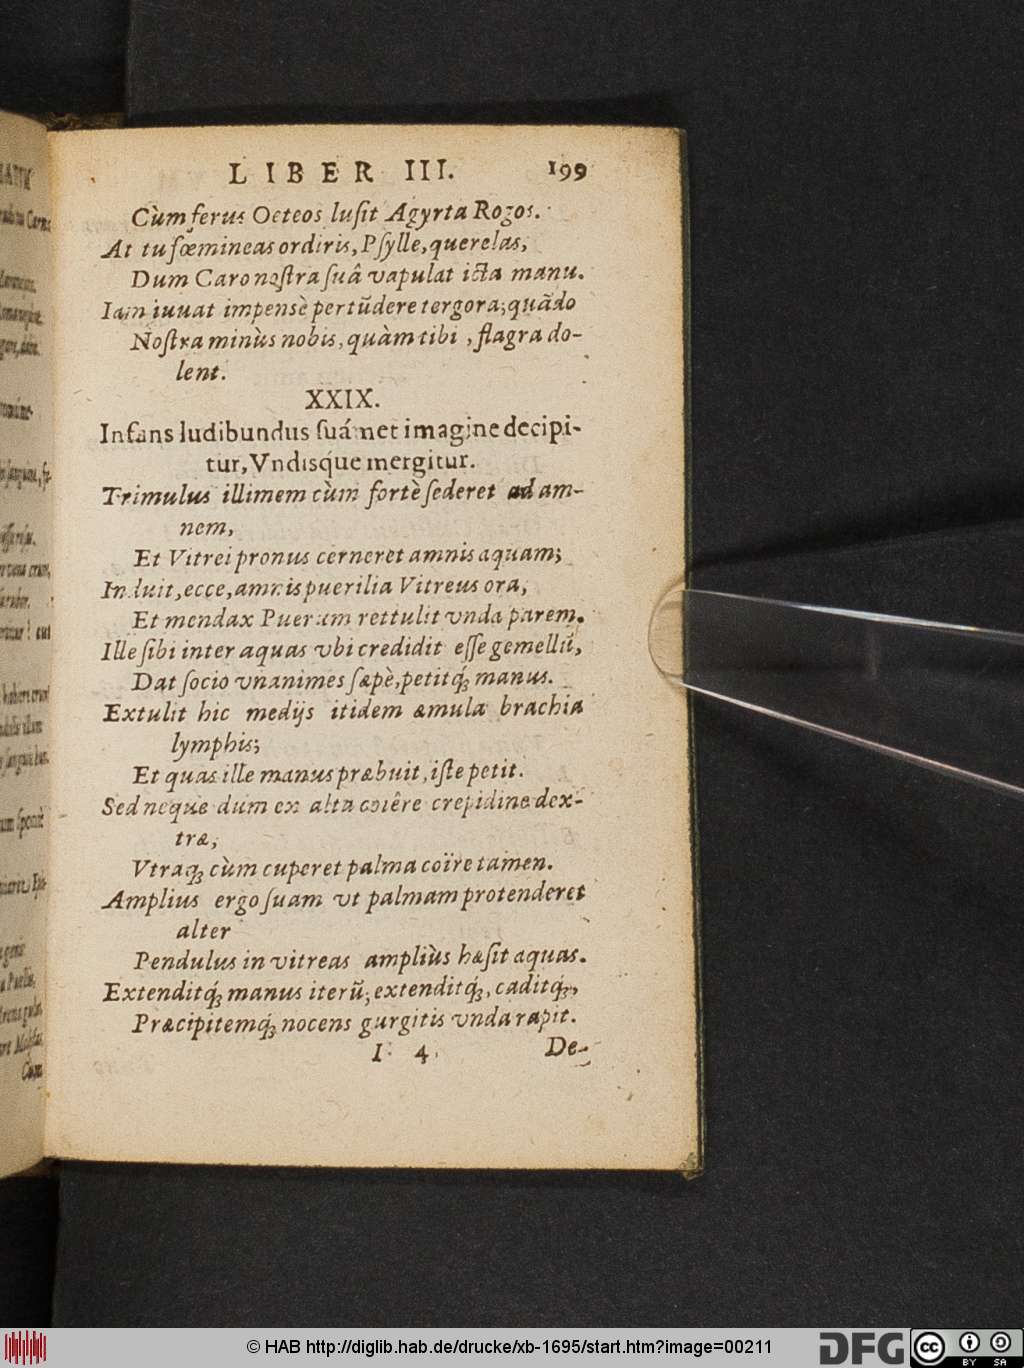 LIBER III. 199
Cùm ferus Oeteos lusit Agyrta Rogos.
At tu fœmineas ordiris, Psylle, querelas,
Dum Caro nostra suâ vapulat icta manu.
Iam iuuat impensè pertũdere tergora; quãdo
Nostra minùs nobis, quàm tibi, flagra do-
lent.
XXIX.
Infans ludibundus suámet imagine decipi-
tur, Vndisque mergitur.
Trimulus illimem cùm fortè sederet ad am-
nem,
Et Vitrei pronus cerneret amnis aquam;
Induit, ecce, amnis puerilia Vitreus ora,
Et mendax Puerum rettulit vnda parem.
Ille sibi inter aquas vbi credidit esse gemellũ,
Dat socio vnanimes sæpè, petitq́; manus.
Extulit hic medijs itidem æmula brachia
lymphis;
Et quas ille manus præbuit, iste petit.
Sed neque dum ex alta coiêre crepidine dex-
træ,
Vtraq; cùm cuperet palma coïre tamen.
Amplius ergo suam vt palmam protenderet
alter
Pendulus in vitreas ampliùs hæsit aquas.
Extenditq́; manus iterũ; extenditq́;, caditq́;,
Præcipitemq́; nocens gurgitis vnda rapit.
I 4 De-
© HAB http://diglib.hab.de/drucke/xb-1695/start.htm?image=00211
DFG
cc BY SA